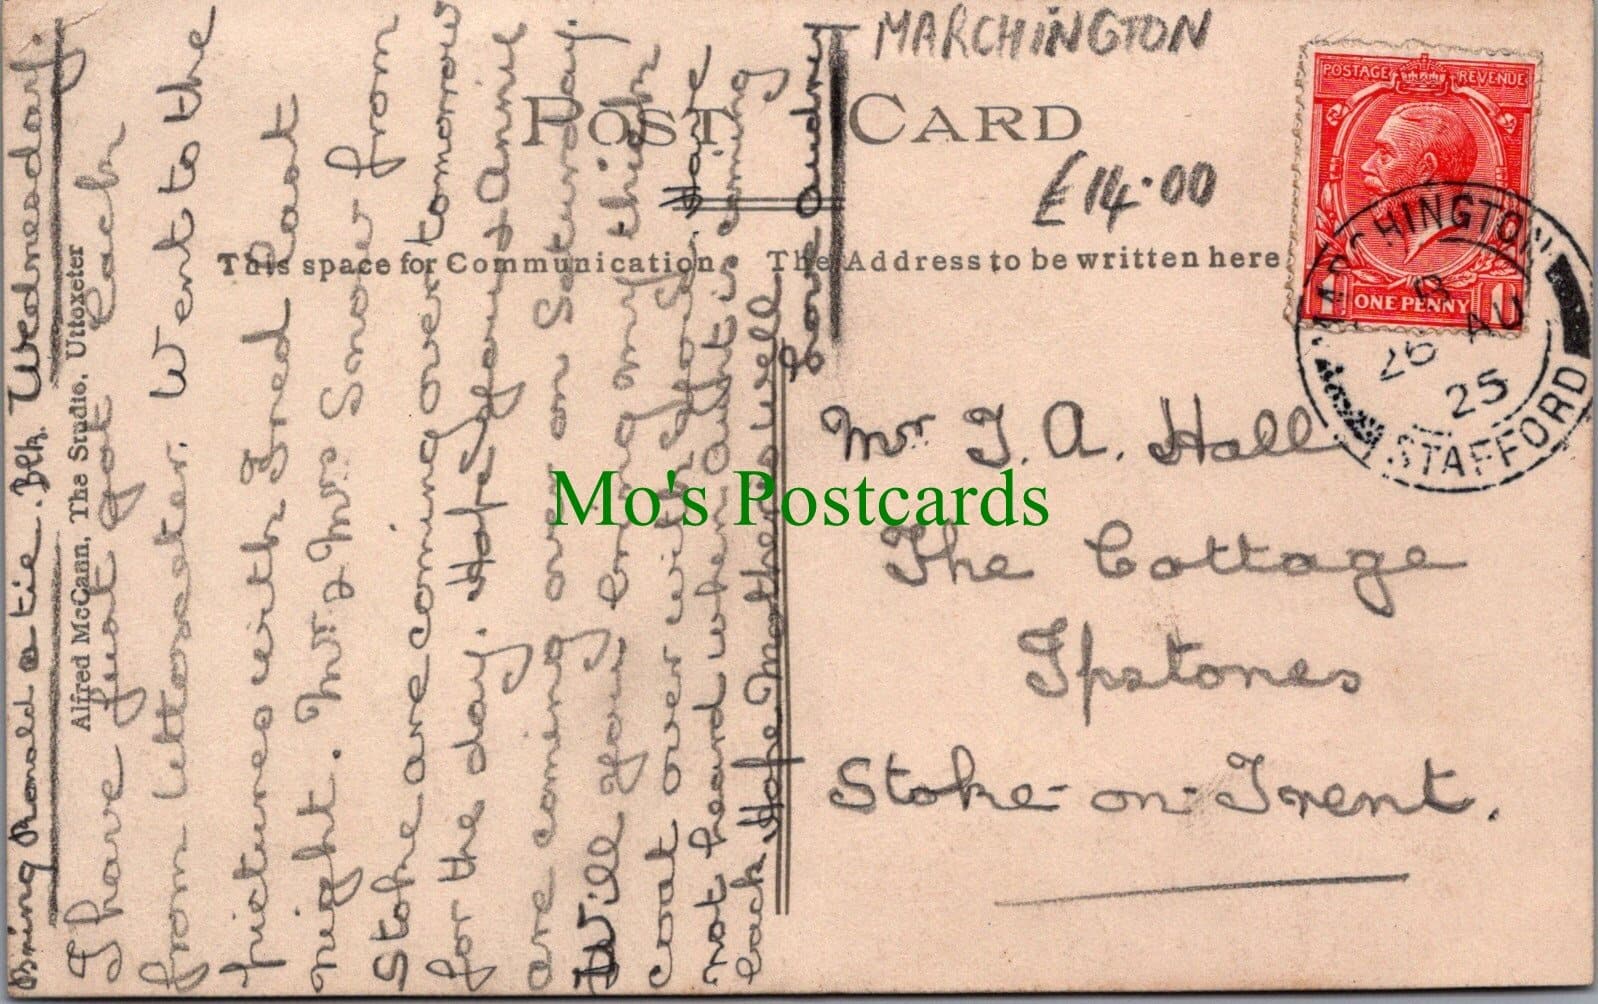 MARCHINGTON
POST CARD
£14.00
This space for Communication.
The Address to be written here
POSTAGE REVENUE
ONE PENNY
MARCHINGTON
26 AU
25
STAFFORD
Alfred McCann, The Studio, Uttoxeter
Bring Ronald a tie. Blk. Wednesday.
I have just got back
from Uttoxeter. Went to the
pictures with Fred last
night. Mr & Mrs Snow from
Stoke are coming over tomorrow
for the day. Hope you & Annie
are coming over on Saturday.
Will you bring my thin
coat over with you. Have
not heard when Aunt is coming
back Hope Mother is well
Love Audrey
Mr. J. A. Hall
The Cottage
Ipstones
Stoke-on-Trent.
Mo's Postcards